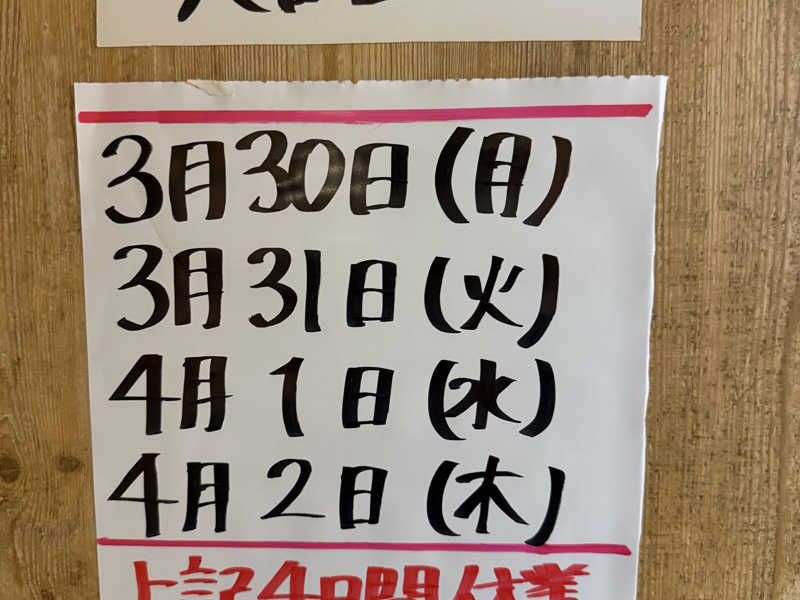 3月30日(月)
3月31日(火)
4月1日(水)
4月2日(木)
上記4日間休業